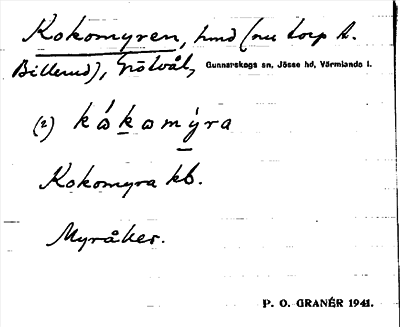 Kokomyren, hmd (nu torp t.
Billerud), Grötvål, Gunnarskogs sn, Jösse hd, Värmlands l.
(2) kåkomýra
Kokomyra kb.
Myråker.
P. O. GRANÉR 1941.